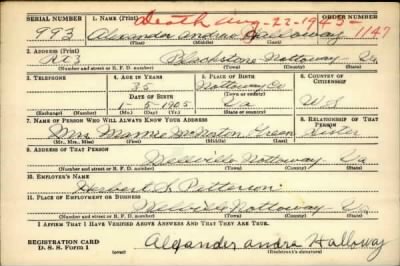 SERIAL NUMBER 1. NAME (Print) ORDER NUMBER
Death Aug-22-1945-
993 Alexander Andrew Halloway 1147
(First) (Middle) (Last)
2. ADDRESS (Print)
Rt 3 Blackstone Nottoway Va
(Number and street or R. F. D. number) (Town) (County) (State)
3. TELEPHONE 4. AGE IN YEARS 5. PLACE OF BIRTH 6. COUNTRY OF CITIZENSHIP
Nottoway Co
(Town or county)
DATE OF BIRTH
1-5-1905 Va U S
(Exchange) (Number) (Mo.) (Day) (Yr.) (State or country)
7. NAME OF PERSON WHO WILL ALWAYS KNOW YOUR ADDRESS 8. RELATIONSHIP OF THAT PERSON
Mrs Mamie Green Sister
(Mr., Mrs., Miss) (First) (Middle) (Last)
9. ADDRESS OF THAT PERSON
Nottoway Va
(Number and street or R. F. D. number) (Town) (County) (State)
10. EMPLOYER'S NAME
Herbert
11. PLACE OF EMPLOYMENT OR BUSINESS
Nottoway Va
(Number and street or R. F. D. number) (Town) (County) (State)
I AFFIRM THAT I HAVE VERIFIED ABOVE ANSWERS AND THAT THEY ARE TRUE.
REGISTRATION CARD
D. S. S. Form 1 (over) Alexander andra Halloway
(Registrant's signature)